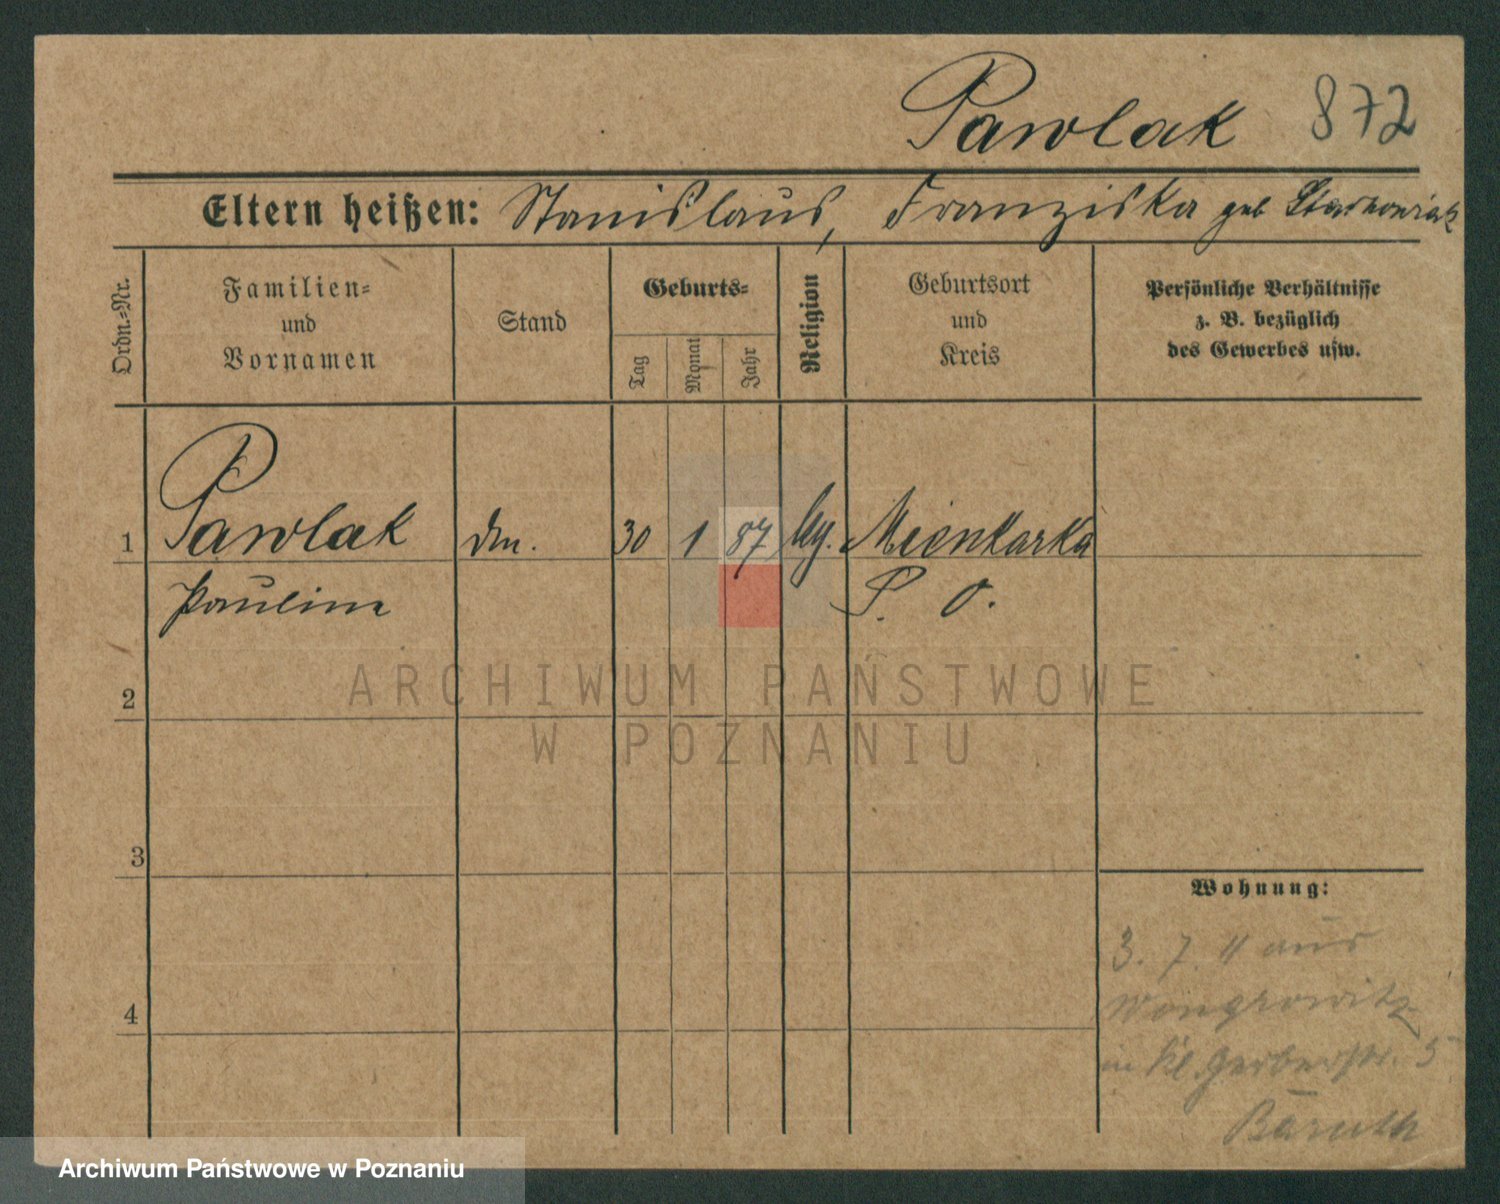 Pawlak 872
Eltern heißen: Stanislaus, Franziska geb
Ordn.-Nr.
Familien-
und
Vornamen
Stand
Geburts-
Tag
Monat
Jahr
Religion
Geburtsort
und
Kreis
Persönliche Verhältnisse
z. B. bezüglich
des Gewerbes usw.
1 Pawlak 30 1 87 Mienkarka
Pauline P. O.
2
3
4
Wohnung:
3. 7. 11 aus
Wongrowitz
in Kl. Gerberstr. 5
Baruch
ARCHIWUM PAŃSTWOWE
W POZNANIU
Archiwum Państwowe w Poznaniu